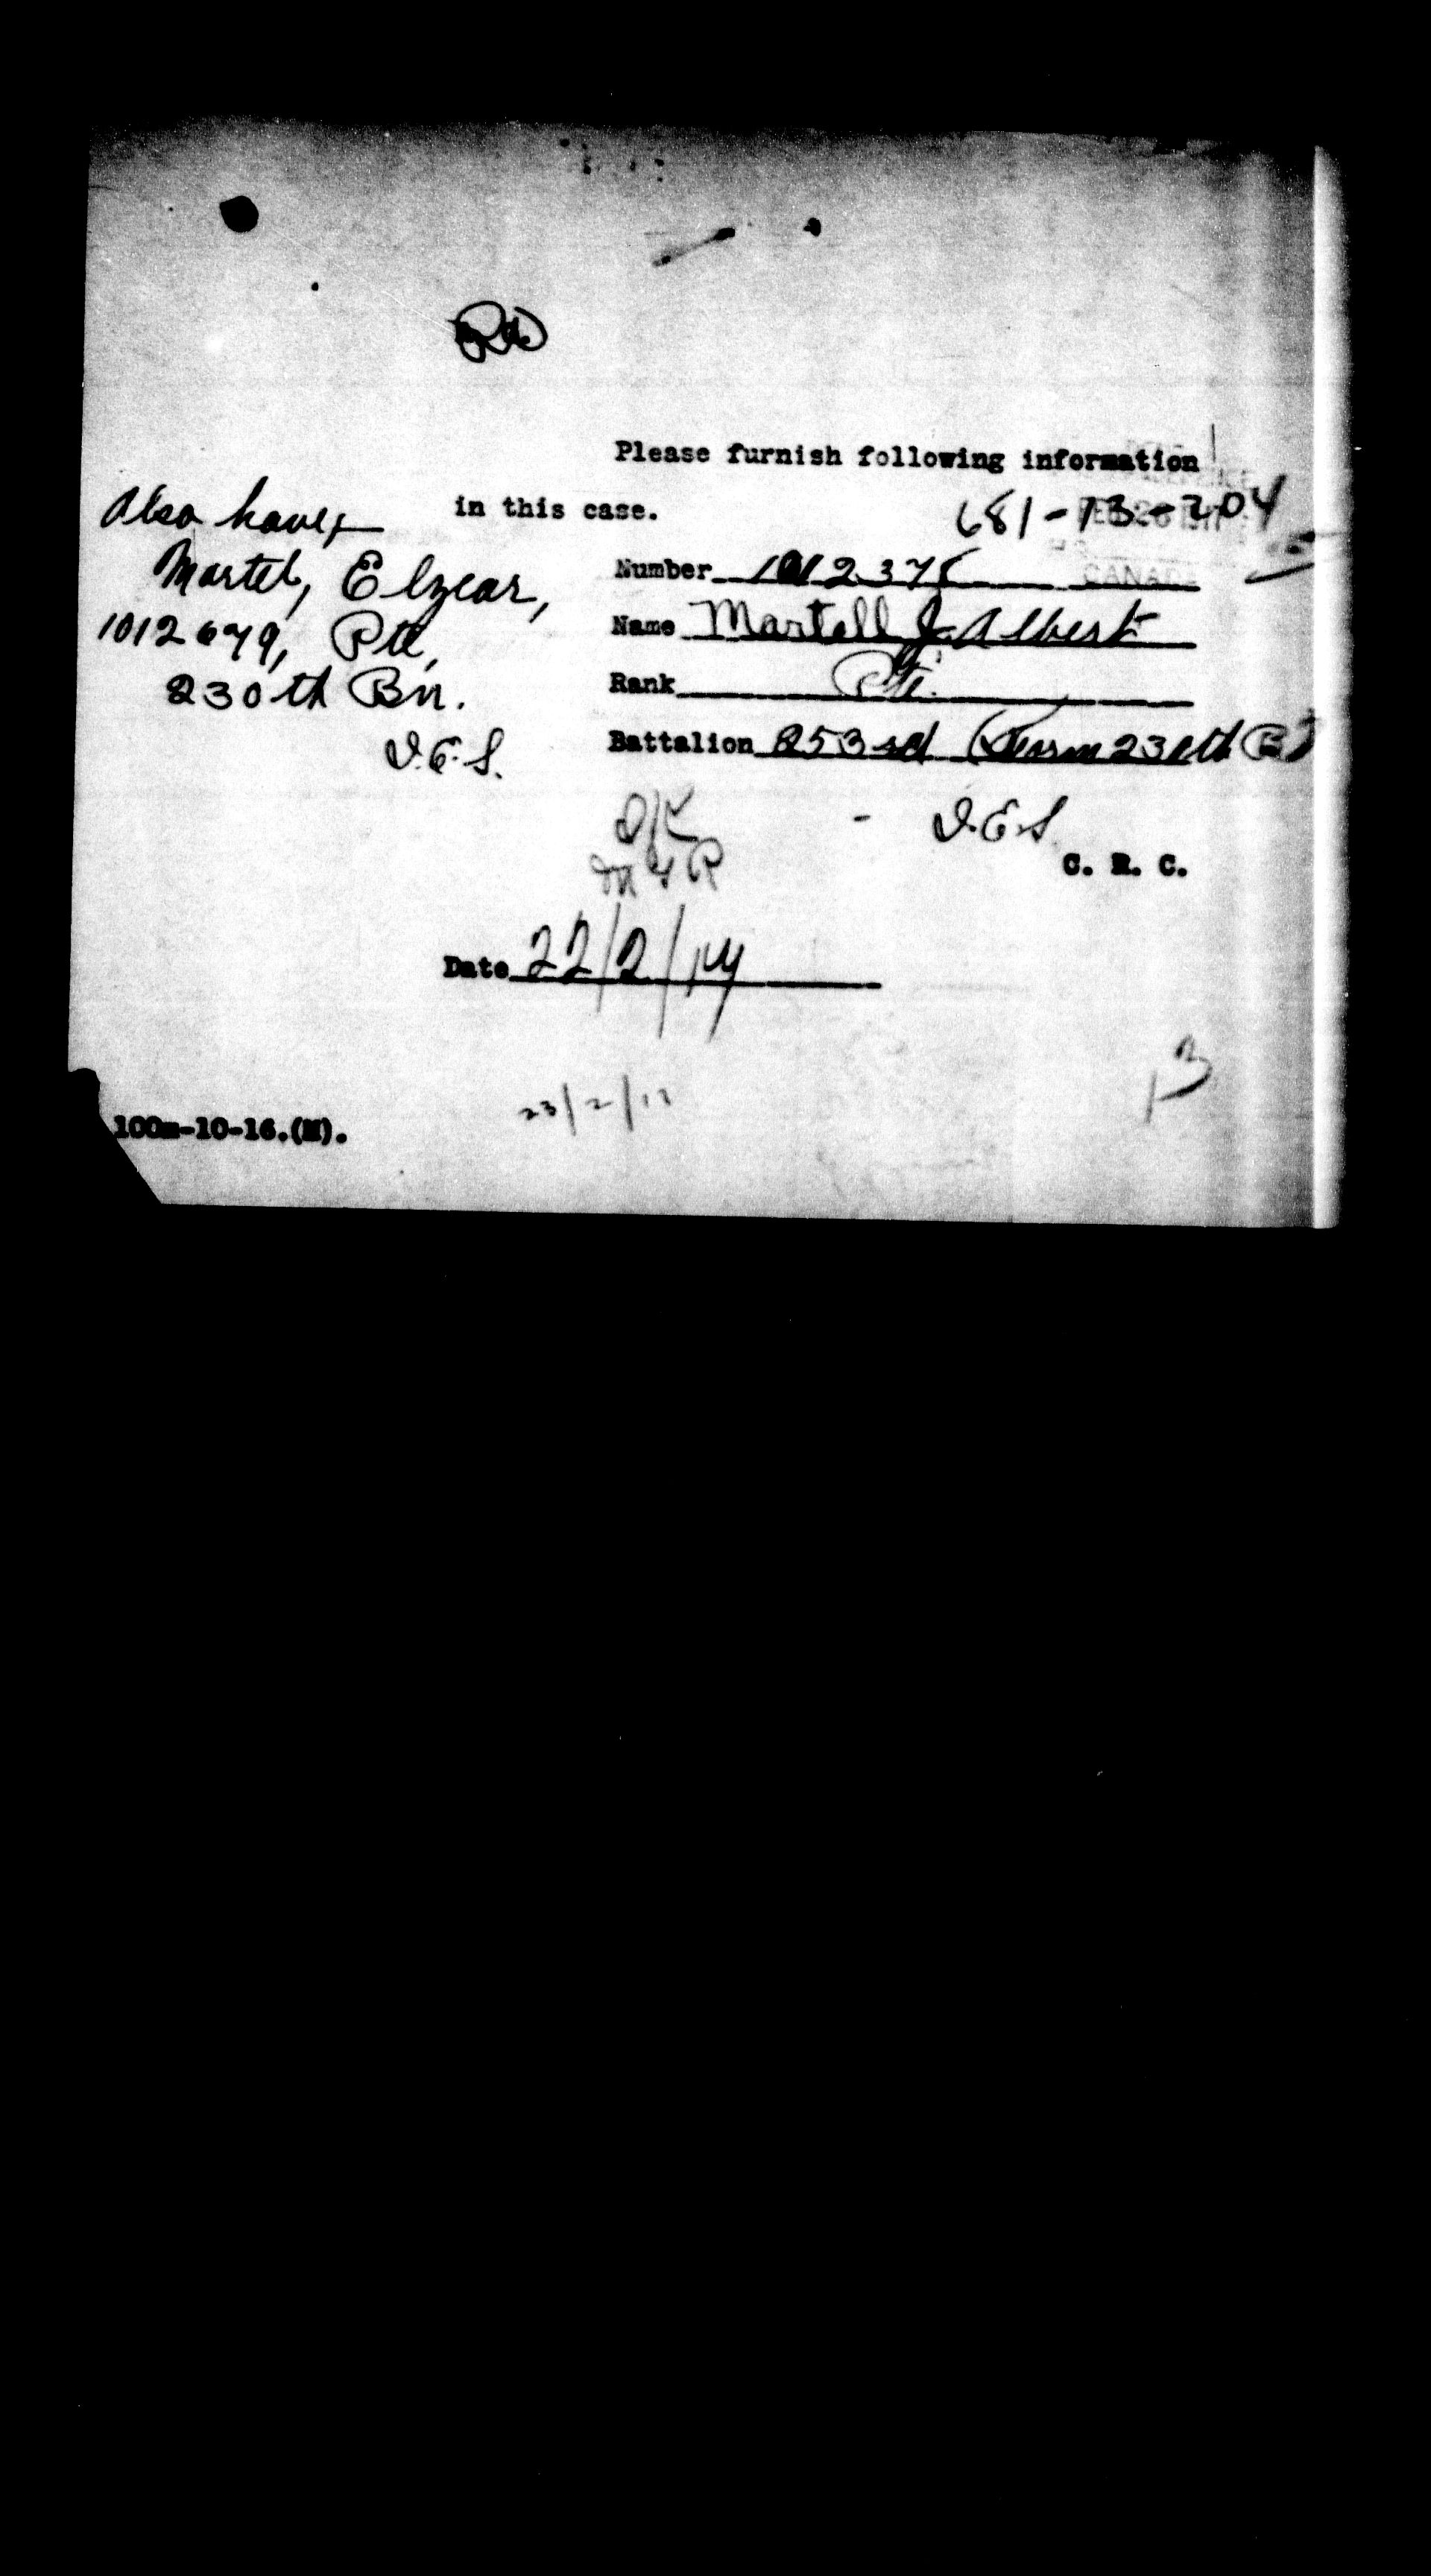 Please furnish following information
in this case.
681-13-204
CANADA
Also have
Martel, Elzear,
1012679, Pte,
230th Bn.
I.E.S.
Number 1012375
Name Martell J. Albert
Rank Pte.
Battalion 253rd (Form 230th Bn)
O/C
I.E.S.
C. R. C.
Date 22/2/17
23/2/17
13
100m-10-16.(M).